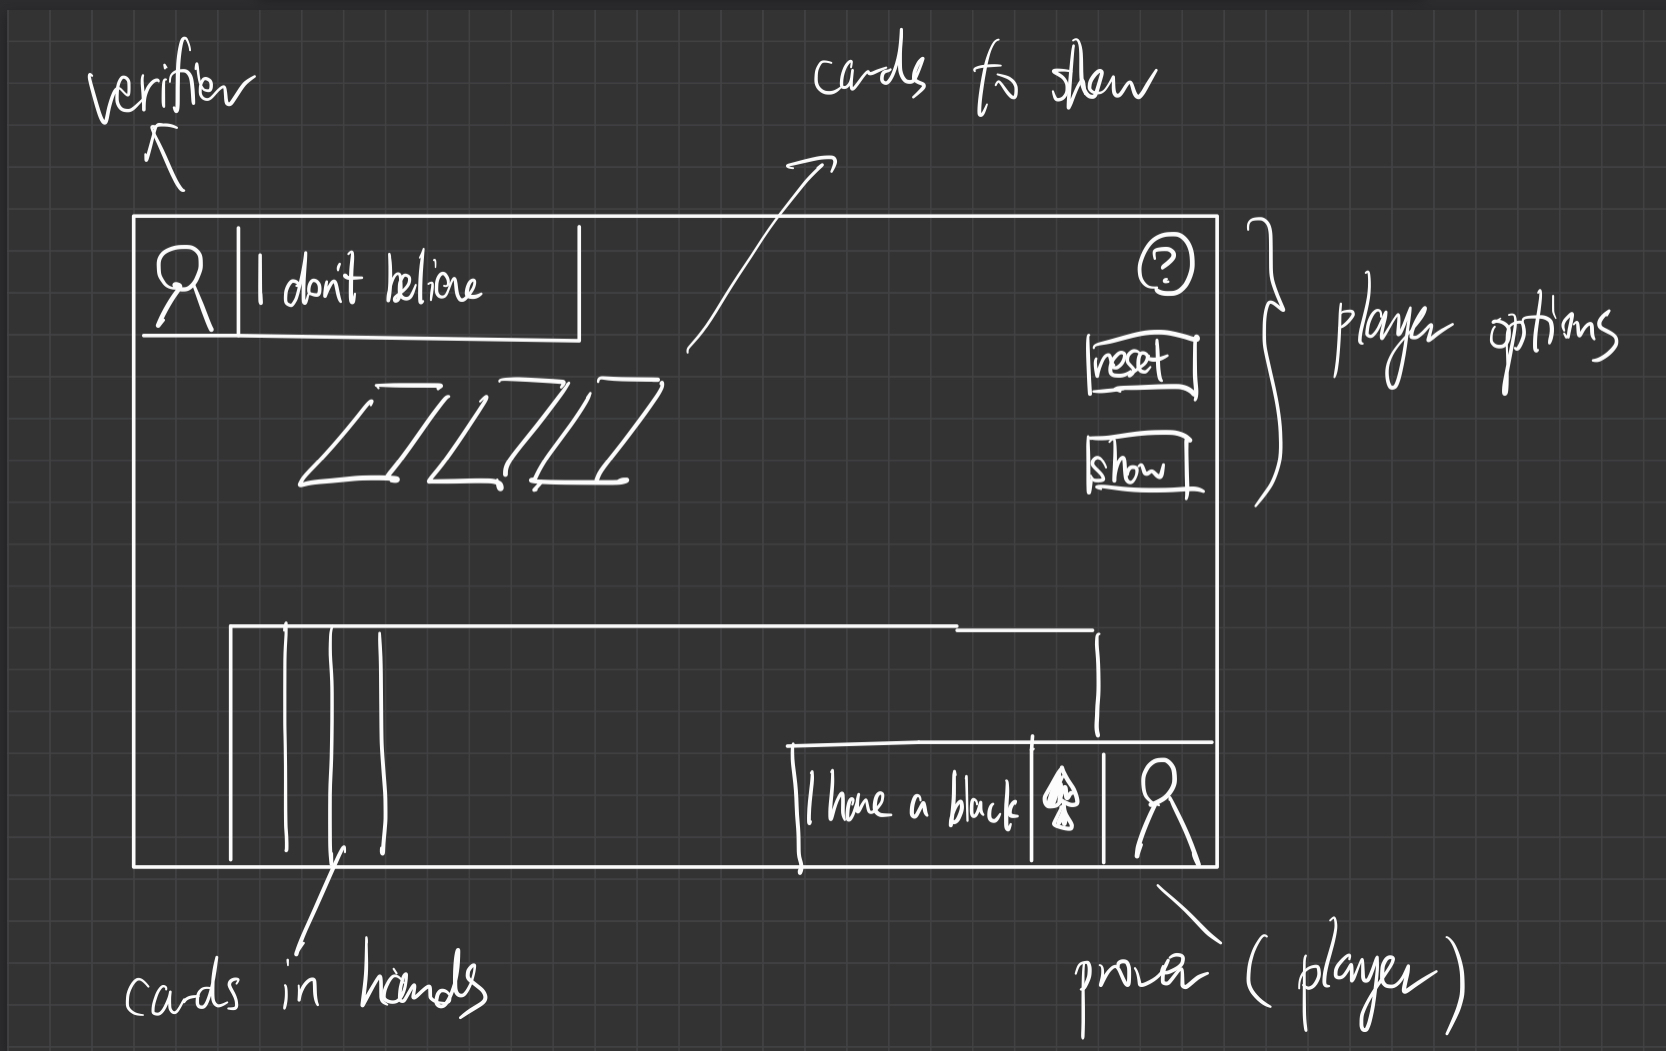 verifier
cards to show
I don't believe
?
reset
show
player options
I have a black
cards in hands
prover (player)